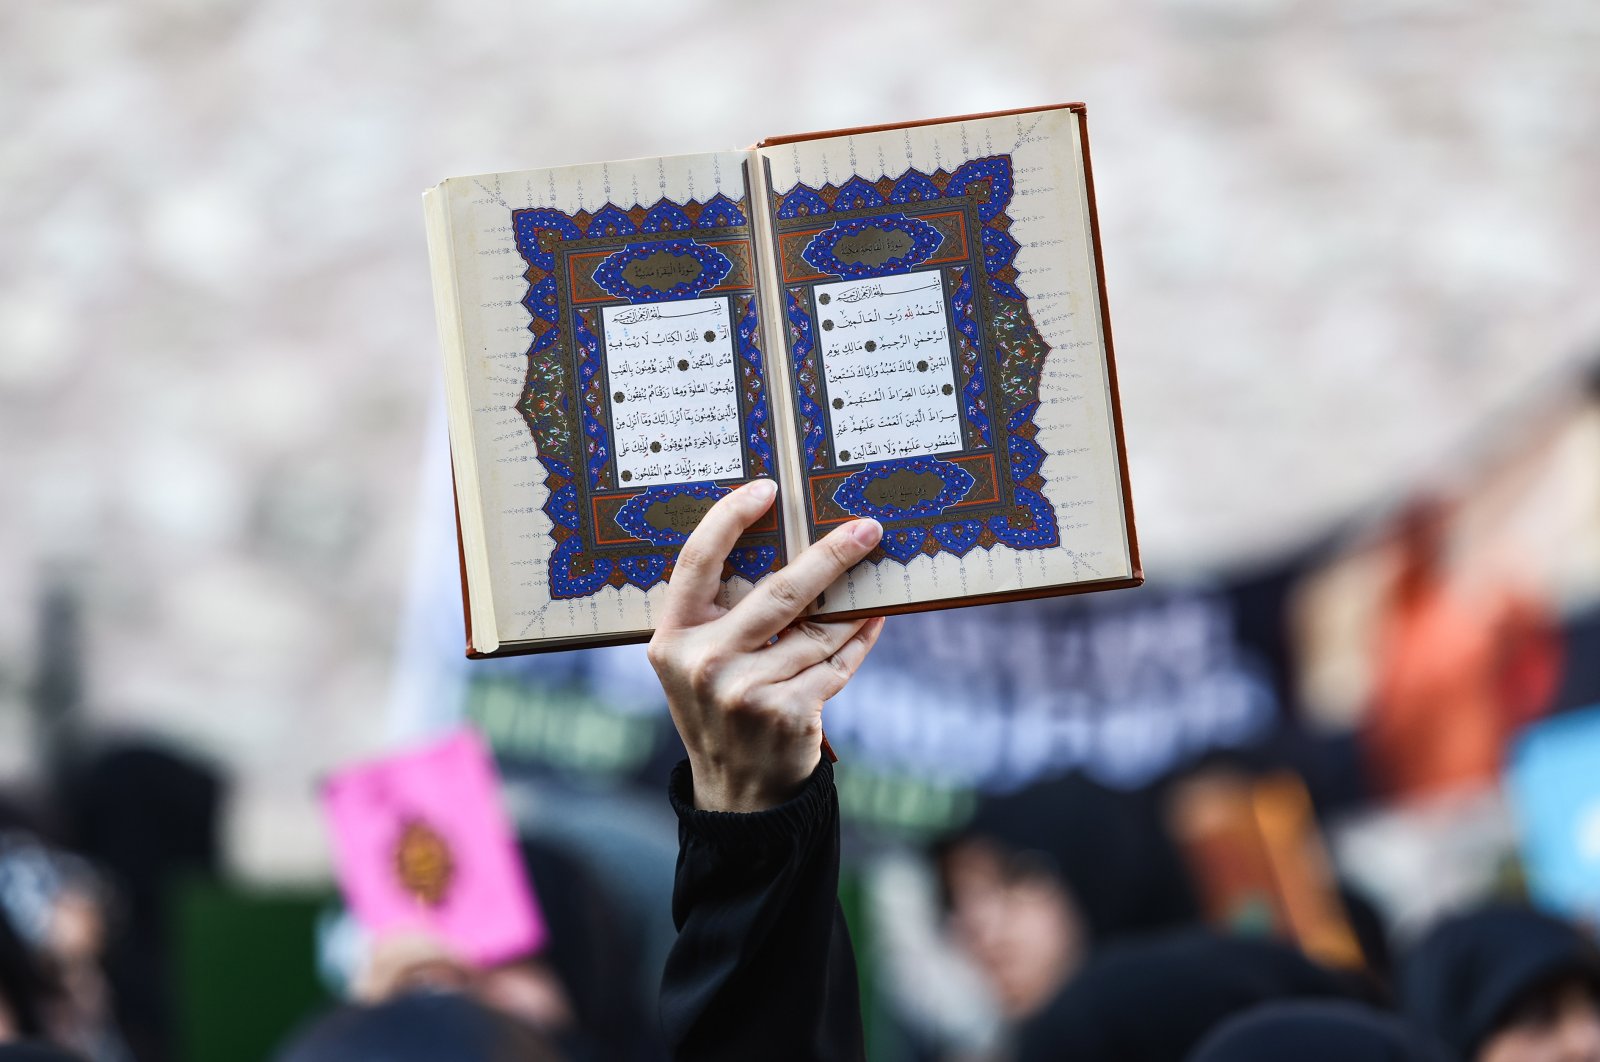 سُورَةُ الْفَاتِحَةِ مَكِّيَّةٌ
بِسْمِ اللهِ الرَّحْمٰنِ الرَّحِيمِ
اَلْحَمْدُ لِلّٰهِ رَبِّ الْعَالَمِينَ
اَلرَّحْمٰنِ الرَّحِيمِ مَالِكِ يَوْمِ
الدِّينِ اِيَّاكَ نَعْبُدُ وَاِيَّاكَ نَسْتَعِينُ
اِهْدِنَا الصِّرَاطَ الْمُسْتَقِيمَ
صِرَاطَ الَّذِينَ اَنْعَمْتَ عَلَيْهِمْ غَيْرِ
الْمَغْضُوبِ عَلَيْهِمْ وَلَا الضَّالِّينَ
وَهِيَ سَبْعُ اٰيَاتٍ
سُورَةُ الْبَقَرَةِ مَدَنِيَّةٌ
بِسْمِ اللهِ الرَّحْمٰنِ الرَّحِيمِ
الٓمٓ ذٰلِكَ الْكِتَابُ لَا رَيْبَ فِيهِ
هُدًى لِلْمُتَّقِينَ اَلَّذِينَ يُؤْمِنُونَ بِالْغَيْبِ
وَيُقِيمُونَ الصَّلٰوةَ وَمِمَّا رَزَقْنَاهُمْ يُنْفِقُونَ
وَالَّذِينَ يُؤْمِنُونَ بِمَا اُنْزِلَ اِلَيْكَ وَمَا اُنْزِلَ مِنْ
قَبْلِكَ وَبِالْاٰخِرَةِ هُمْ يُوقِنُونَ اُولٰئِكَ عَلٰى
هُدًى مِنْ رَبِّهِمْ وَاُولٰئِكَ هُمُ الْمُفْلِحُونَ